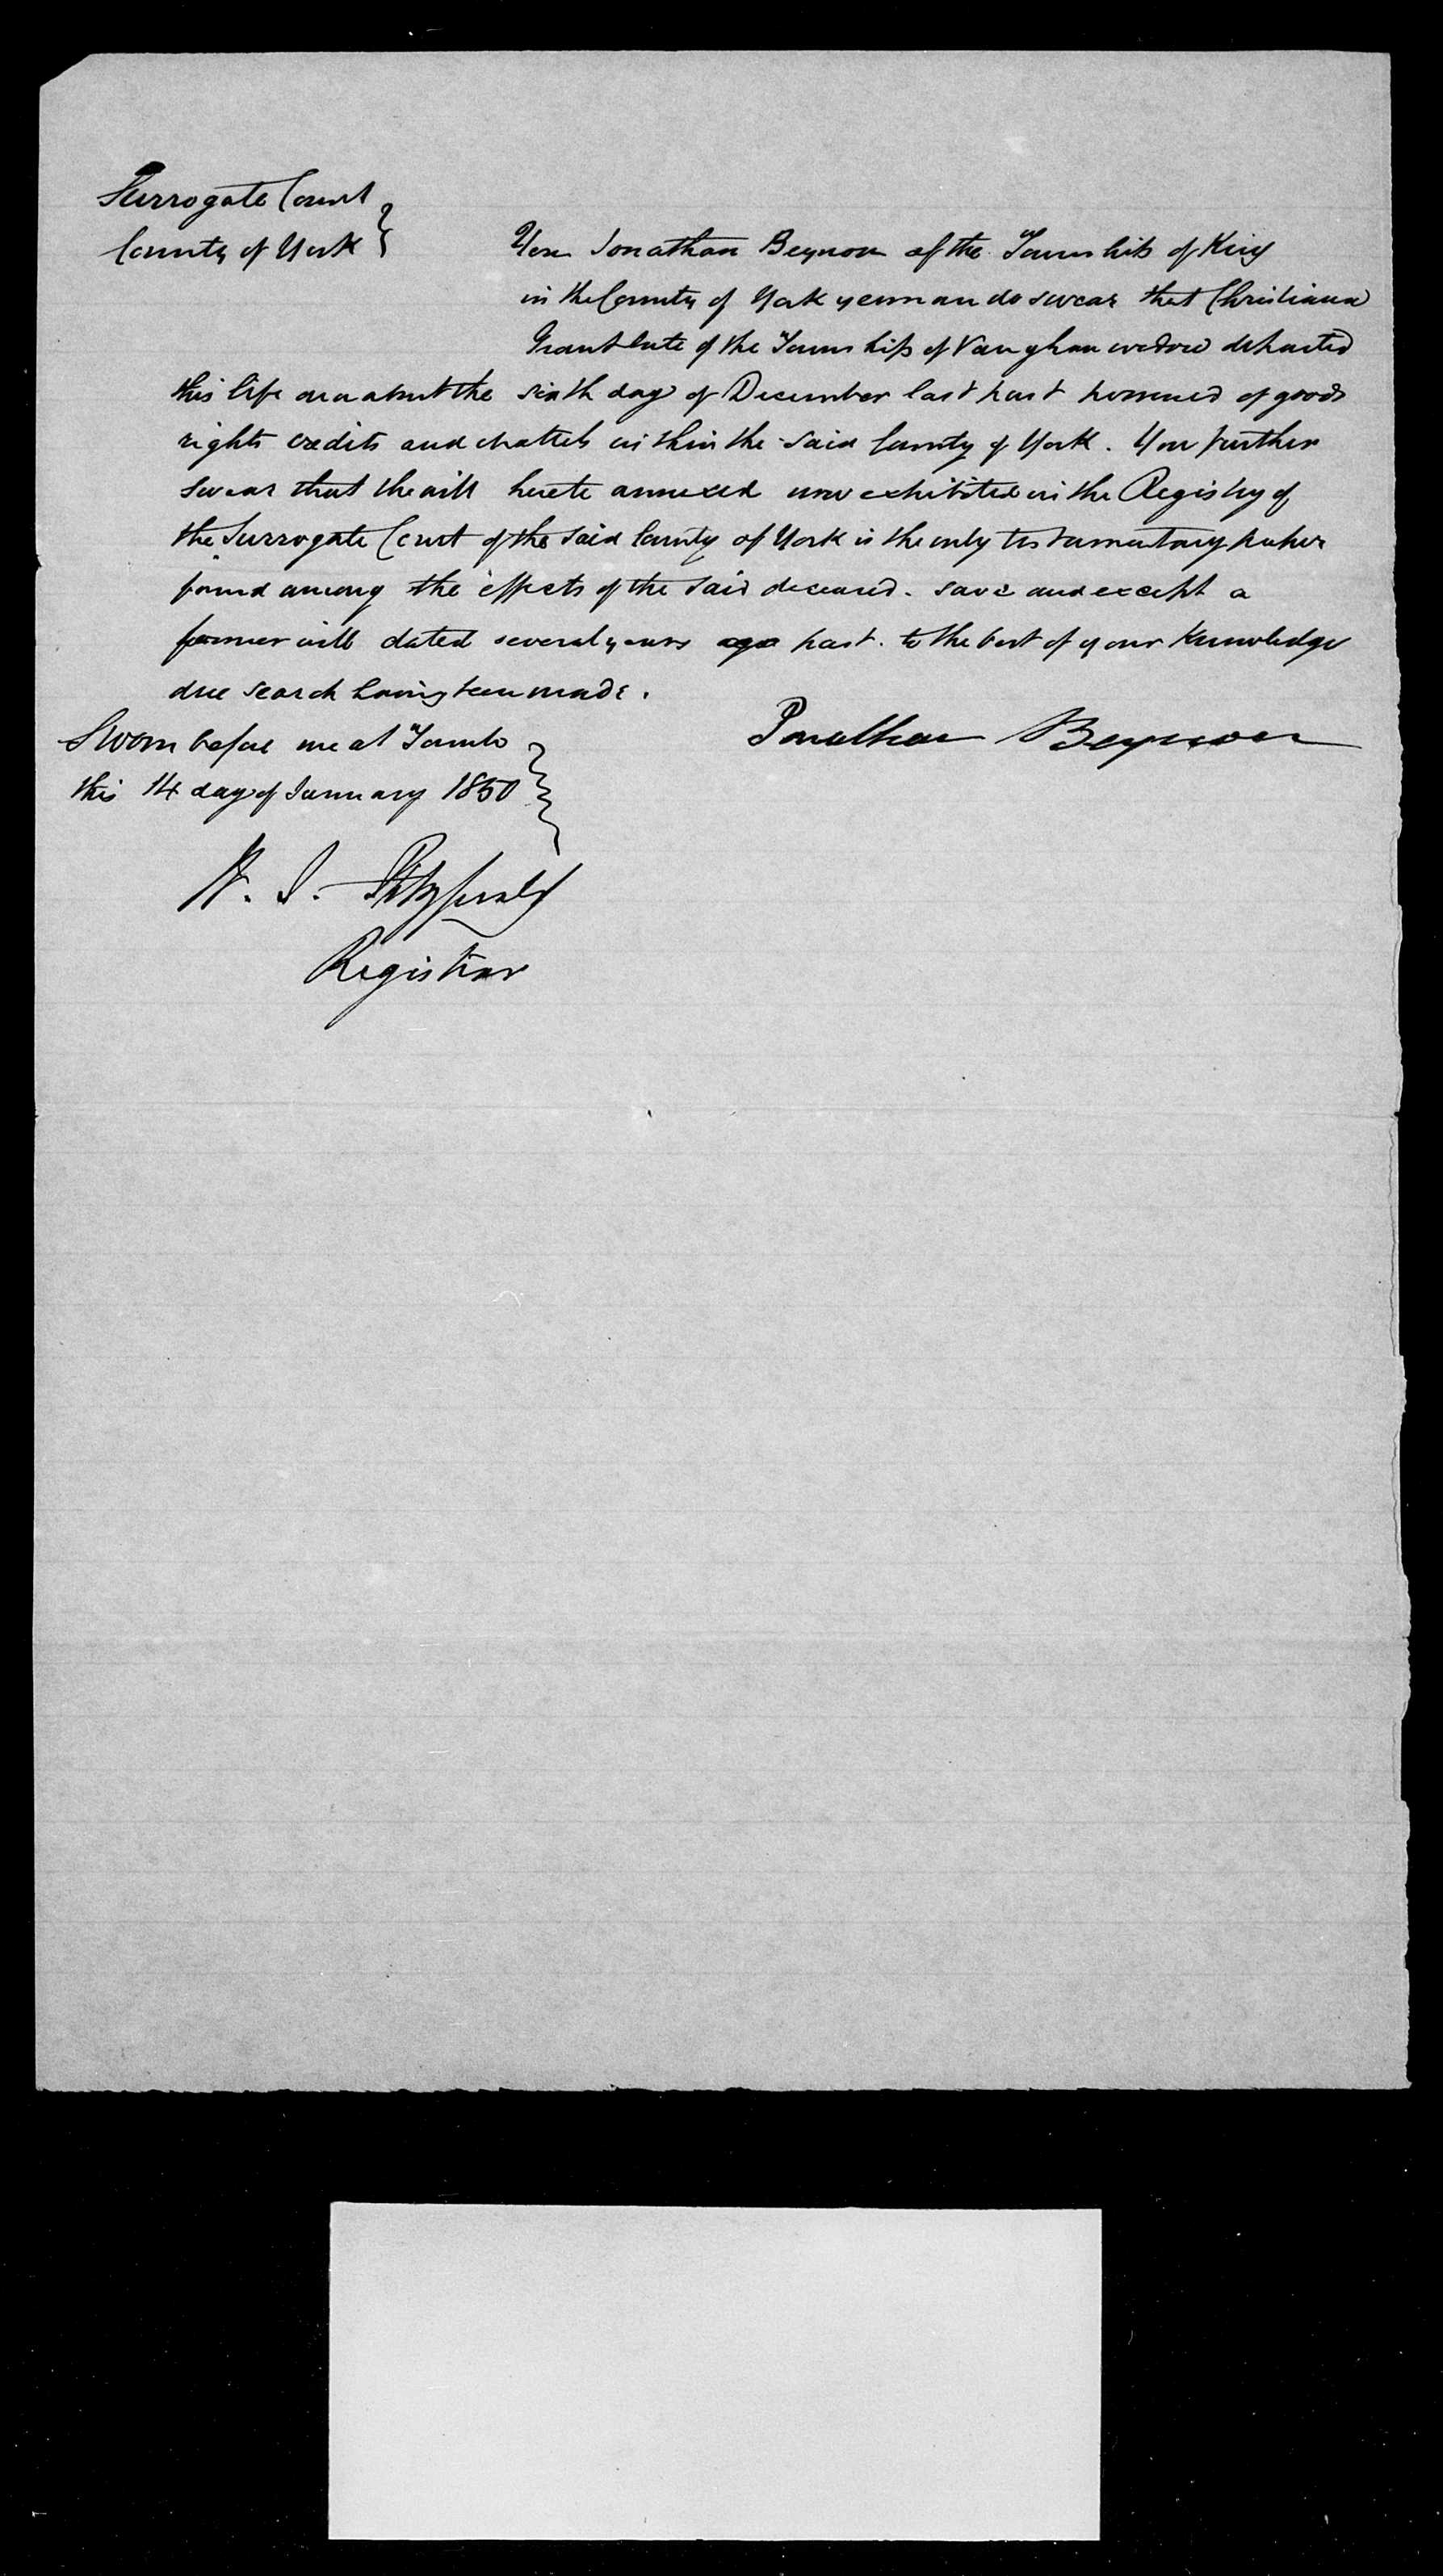 Surrogate Court
County of York
You Jonathan Beynon of the Township of King
in the County of York yeoman do swear that Christiana
Grant late of the Township of Vaughan widow departed
this life on or about the sixth day of December last past possessed of goods
rights credits and chattels within the said County of York. You further
swear that the will hereto annexed now exhibited in the Registry of
the Surrogate Court of the said County of York is the only testamentary paper
found among the effects of the said deceased. save and except a
former will dated several years ago past. to the best of your Knowledge
due search having been made.
Jonathan Beynon
Sworn before me at Toronto
this 14 day of January 1850
W. J. Fitzgerald
Registrar